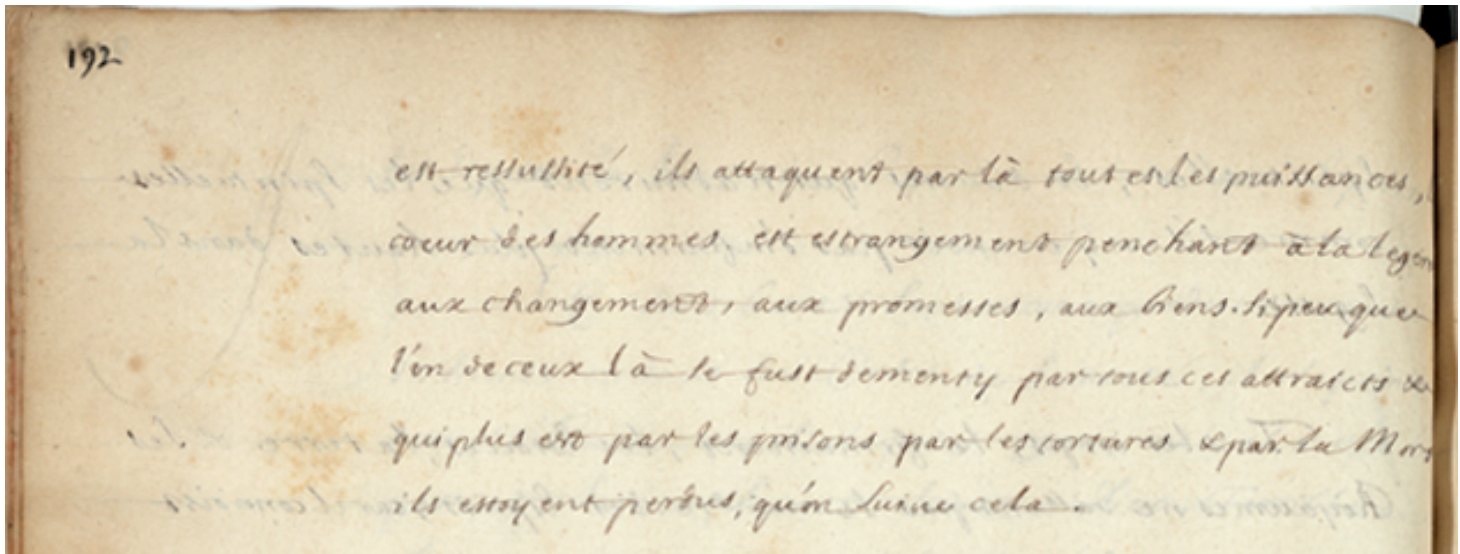 192
est ressussité, ils attaquent par là toutes les puissances,
coeur des hommes est estrangement penchant à la leger
aux changement, aux promesses, aux biens. si peu que
l'un de ceux là se fust dementy par tous ces attraicts &
qui plus est par les prisons par les tortures & par la Mort
ils estoyent perdus, qu'on suiue cela.